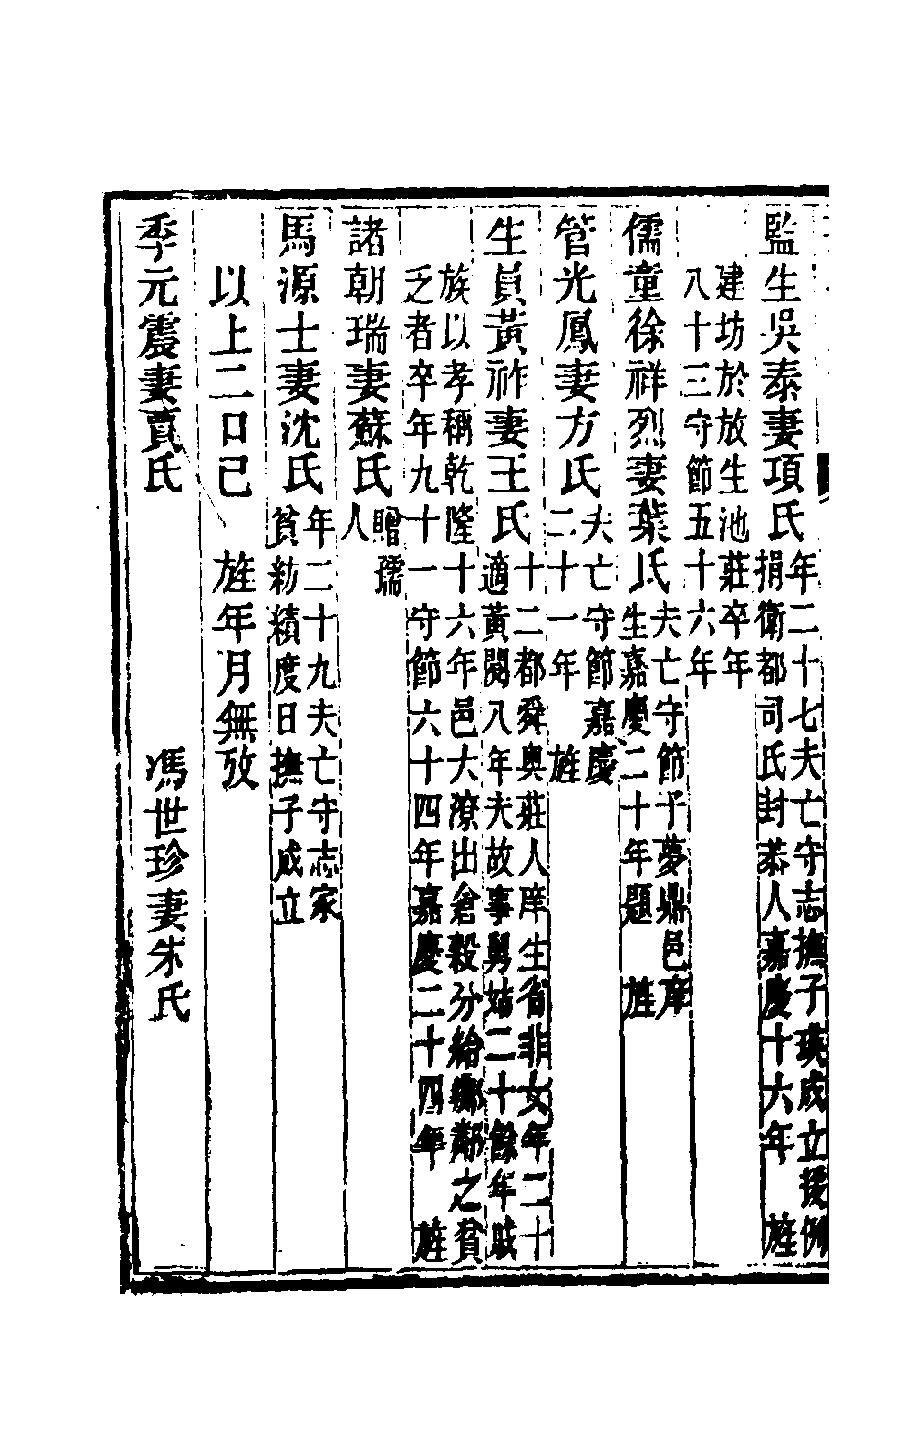 監生吳泰妻項氏年二十七夫亡守志撫子瑛成立援例
捐衛都司氏封恭人嘉慶十六年　旌
建坊於放生池莊卒年
八十三守節五十六年
儒童徐祥烈妻葉氏夫亡守節子夢鼎邑庠
生嘉慶二十年題　旌
管光鳳妻方氏夫亡守節嘉慶
二十一年　旌
生員黃祚妻王氏十二都舜奧莊人庠生省非女年二十
適黃閱八年夫故事舅姑二十餘年戚
族以孝稱乾隆十六年邑大潦出倉穀分給鄉鄰之貧
乏者卒年九十一守節六十四年嘉慶二十四年　旌
諸朝瑞妻蘇氏贈孺
人
馬源士妻沈氏年二十九夫亡守志家
貧紡績度日撫子成立
以上二口已　旌年月無攷
季元震妻賈氏　馮世珍妻朱氏